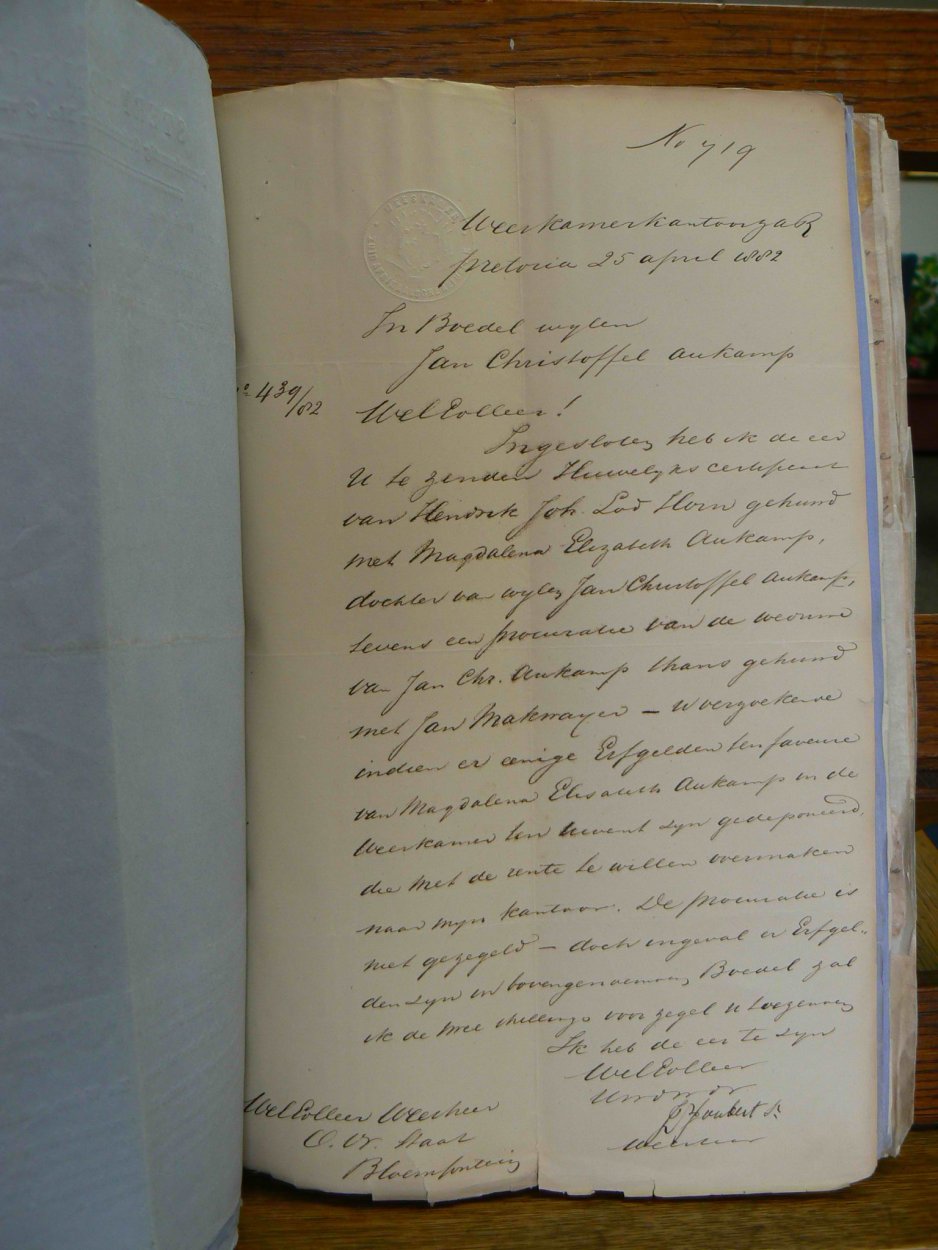 No 719
Weeskamerkantoor ZAR
Pretoria 25 april 1882
In Boedel wylen
Jan Christoffel Aukamp
No 439/82
WelEdleer!
Ingesloten heb ik de eer
U te zenden Huwelyks certificaat
van Hendrik Joh. Lod Horn gehuwd
met Magdalena Elizabeth Aukamp,
dochter van wylen Jan Christoffel Aukamp,
tevens een procuratie van de weduwe
van Jan Chr. Aukamp thans gehuwd
met Jan – U verzoekende
indien er eenige Erfgelden ten faveure
van Magdalena Elisabeth Aukamp in de
Weeskamer ten Uwent zyn gedeponeerd,
die met de rente te willen overmaken
naar myn kantoor. De procuratie is
niet gezegeld – doch ingeval er Erfgel-
den zyn in bovengenoemden Boedel zal
ik de twee shillings voor zegel U toezenden
Ik heb de eer te zyn
WelEdleer
UwdWdr
Joubert Sr
Weesheer
WelEdleer Weesheer
O. V. Staat
Bloemfontein